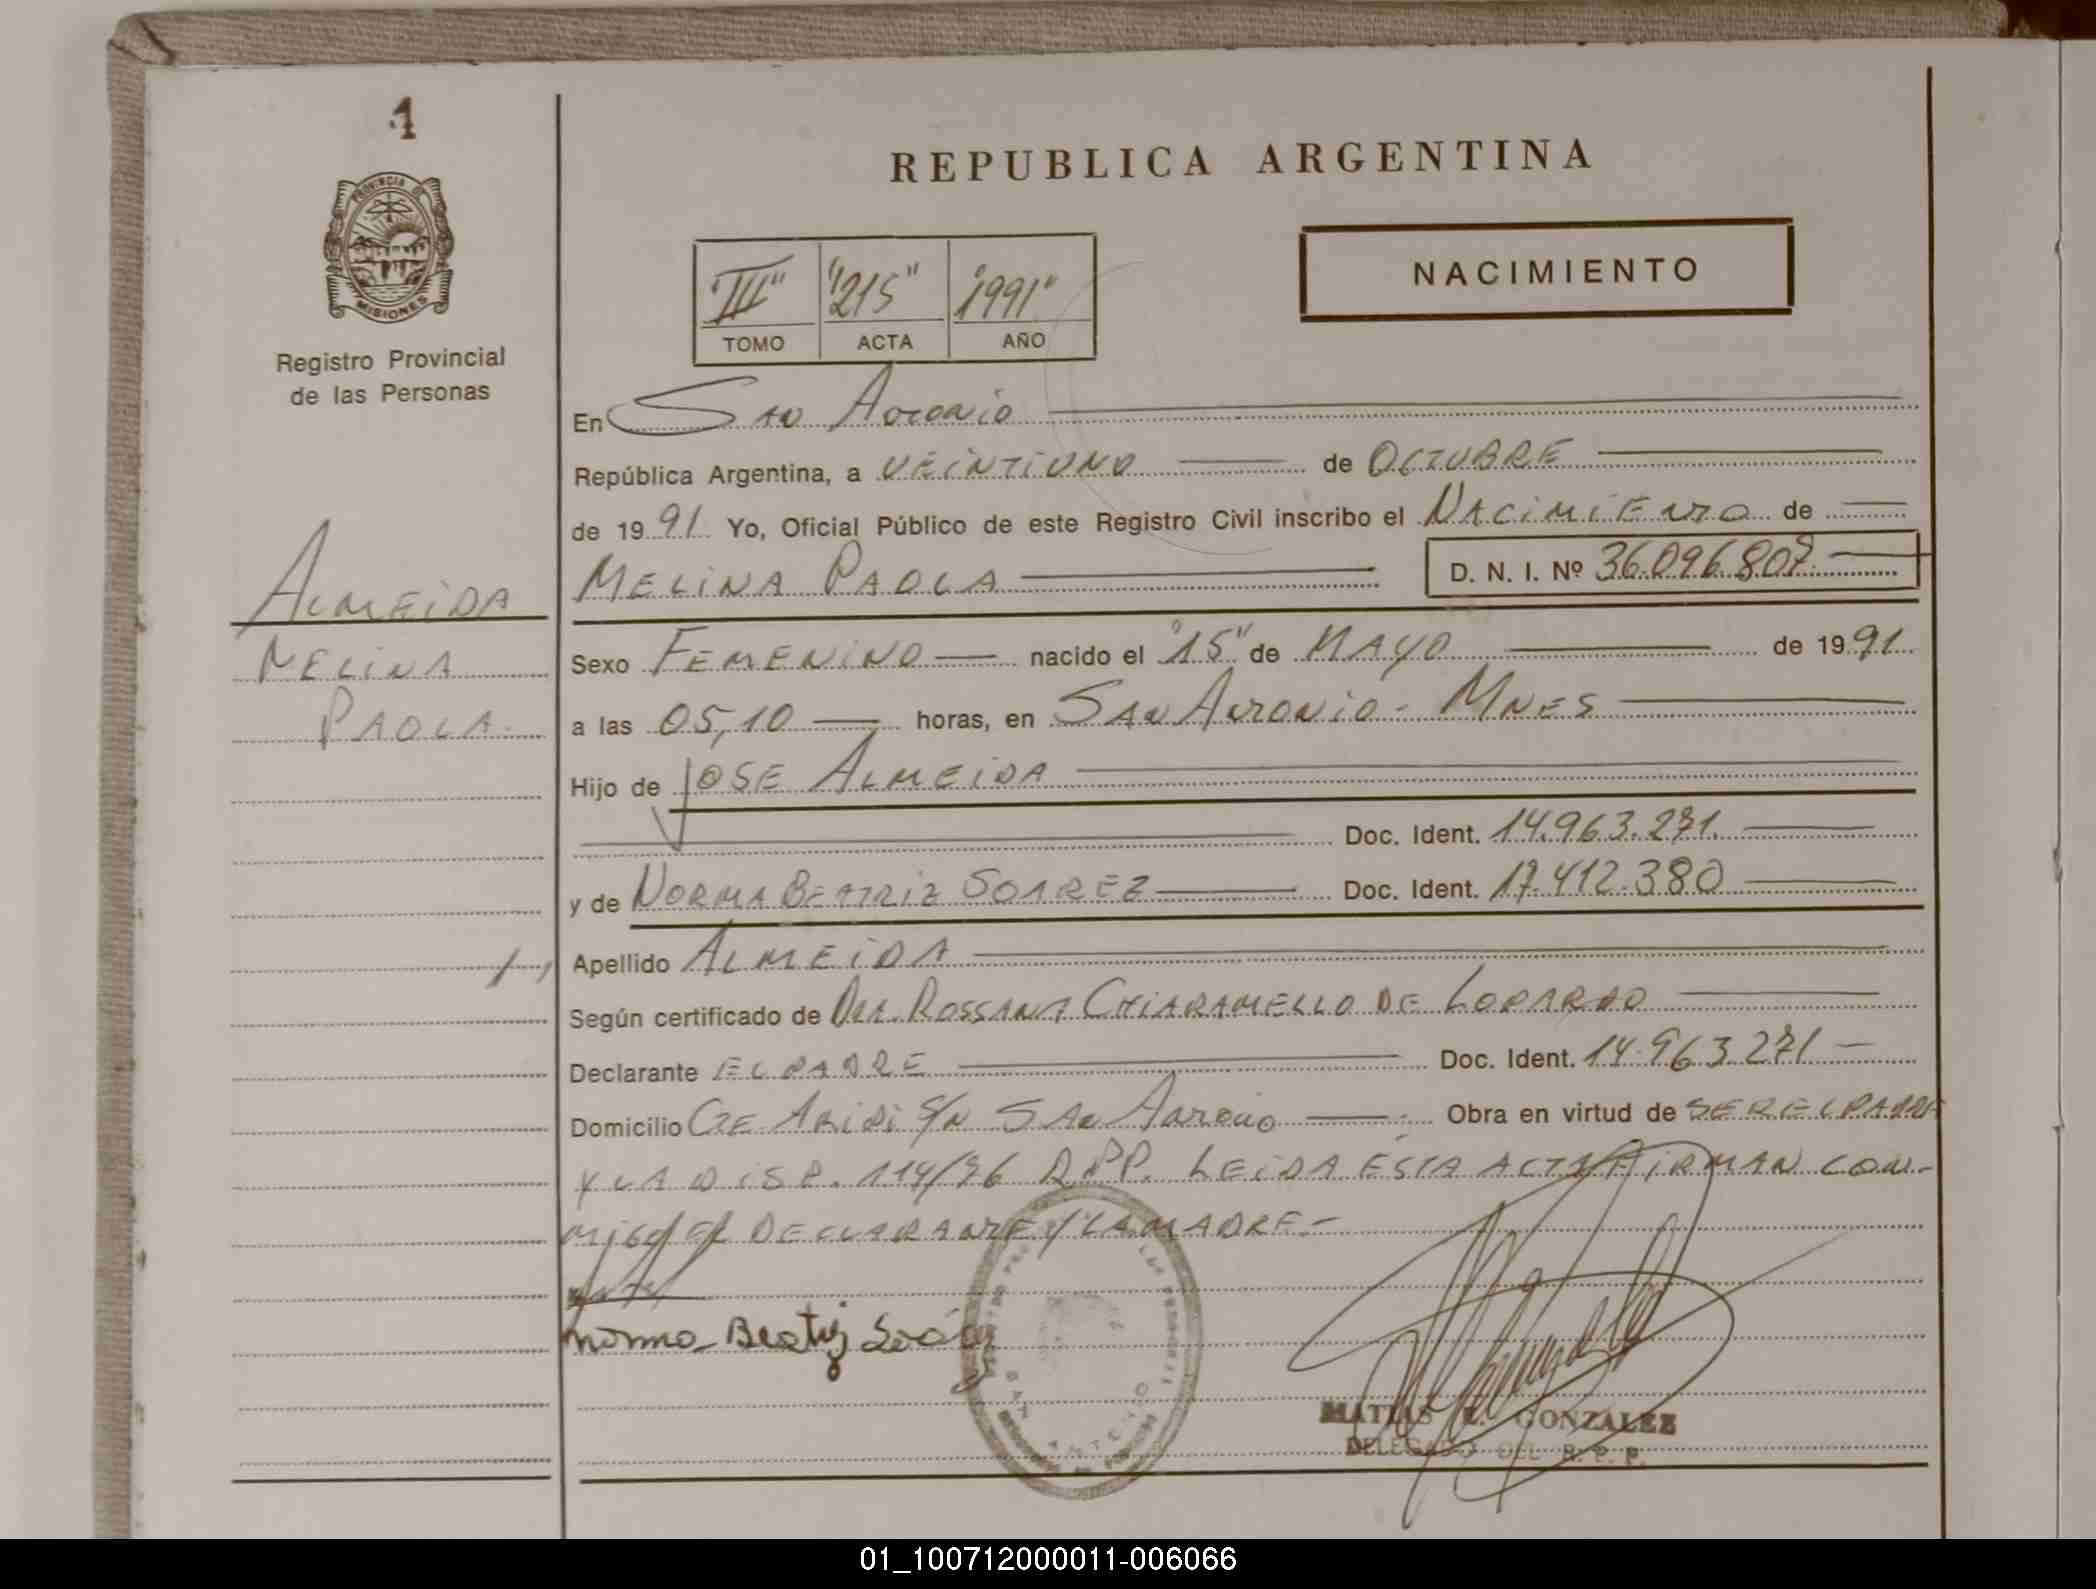 1
PROVINCIA DE
MISIONES
Registro Provincial
de las Personas
ALMEIDA
MELINA
PAOLA.
REPUBLICA ARGENTINA
"III" "215" "1991"
TOMO ACTA AÑO
NACIMIENTO
En SAN ANTONIO
República Argentina, a VEINTIUNO de OCTUBRE
de 1991. Yo, Oficial Público de este Registro Civil inscribo el NACIMIENTO de
MELINA PAOLA D. N. I. Nº 36.096.807.
Sexo FEMENINO nacido el "15" de MAYO de 1991.
a las 05,10 horas, en SAN ANTONIO - MNES
Hijo de JOSE ALMEIDA
Doc. Ident. 14.963.271.
y de NORMA BEATRIZ SOAREZ Doc. Ident. 17.412.380
Apellido ALMEIDA
Según certificado de DRA. ROSSANA CHIARAMELLO DE
Declarante EL PADRE Doc. Ident. 14.963.271
Domicilio CTE. S/N SAN ANTONIO Obra en virtud de SER EL PADRE
Y LA DISP. 114/76 RPP. LEIDA ESTA ACTA FIRMAN CON-
MIGO EL DECLARANTE Y LA MADRE=
Norma Beatriz
SAN ANTONIO
MATIAS E. GONZALEZ
DELEGADO DEL R. P. P.
01_100712000011-006066